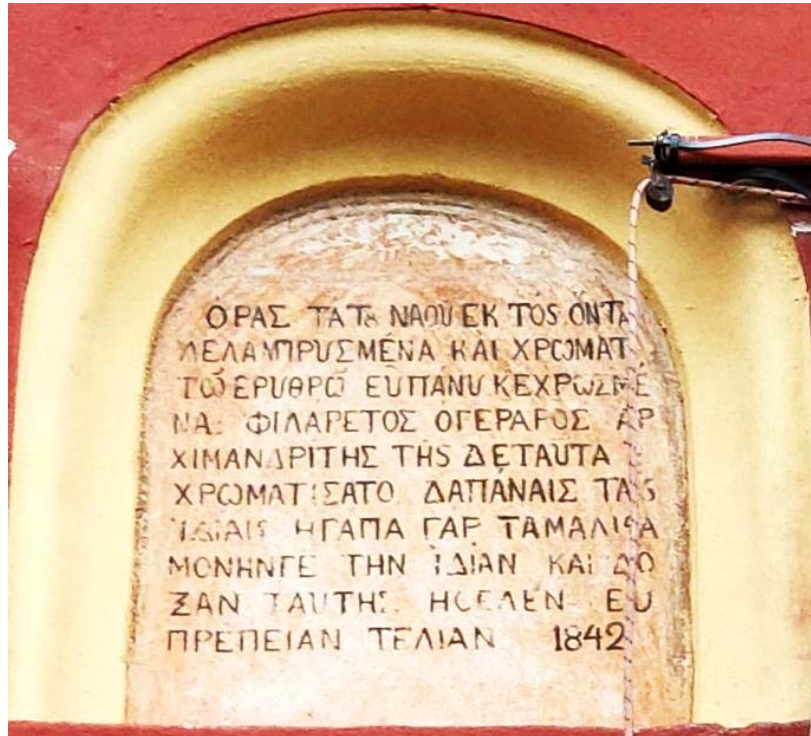 ὉΡΑΣ ΤᾺ Τȣ͂ ΝΑΟΥ͂ ΕΚ ΤΌΣ ὌΝΤΑ
ΛΕΛΑΜΠΡΥΣΜΈΝΑ ΚΑῚ ΧΡΩΜΑΤΙ
ΤΩ͂ ΕΡΥΘΡΩ͂ ΕΥΠΆΝΥ ΚΕΧΡΩΣΜΈ
ΝΑ: ΦΙΛΆΡΕΤΟΣ Ο ΓΕΡΑΡΌΣ ἈΡ
ΧΙΜΑΝΔΡΊΤΗΣ ΤΗ͂Σ ΔῈ ΤΑΥ͂ΤΑ
ΧΡΩΜΑΤΙΣΑΤΟ ΔΑΠΆΝΑΙΣ ΤΑΣ
ἸΔΊΑΙΣ ΗΓΆΠΑ ΓᾺΡ ΤΑΜΆΛΙΣΑ
ΜΟΝΗΝΓΕ ΤΗΝ ἸΔΊΑΝ ΚΑῚ ΔΟ
ΞΑΝ ΤΑΎΤΗΣ ΗΘΕΛΕΝ ΕΥ
ΠΡΈΠΕΙΑΝ ΤΕΛΙΑΝ 1842